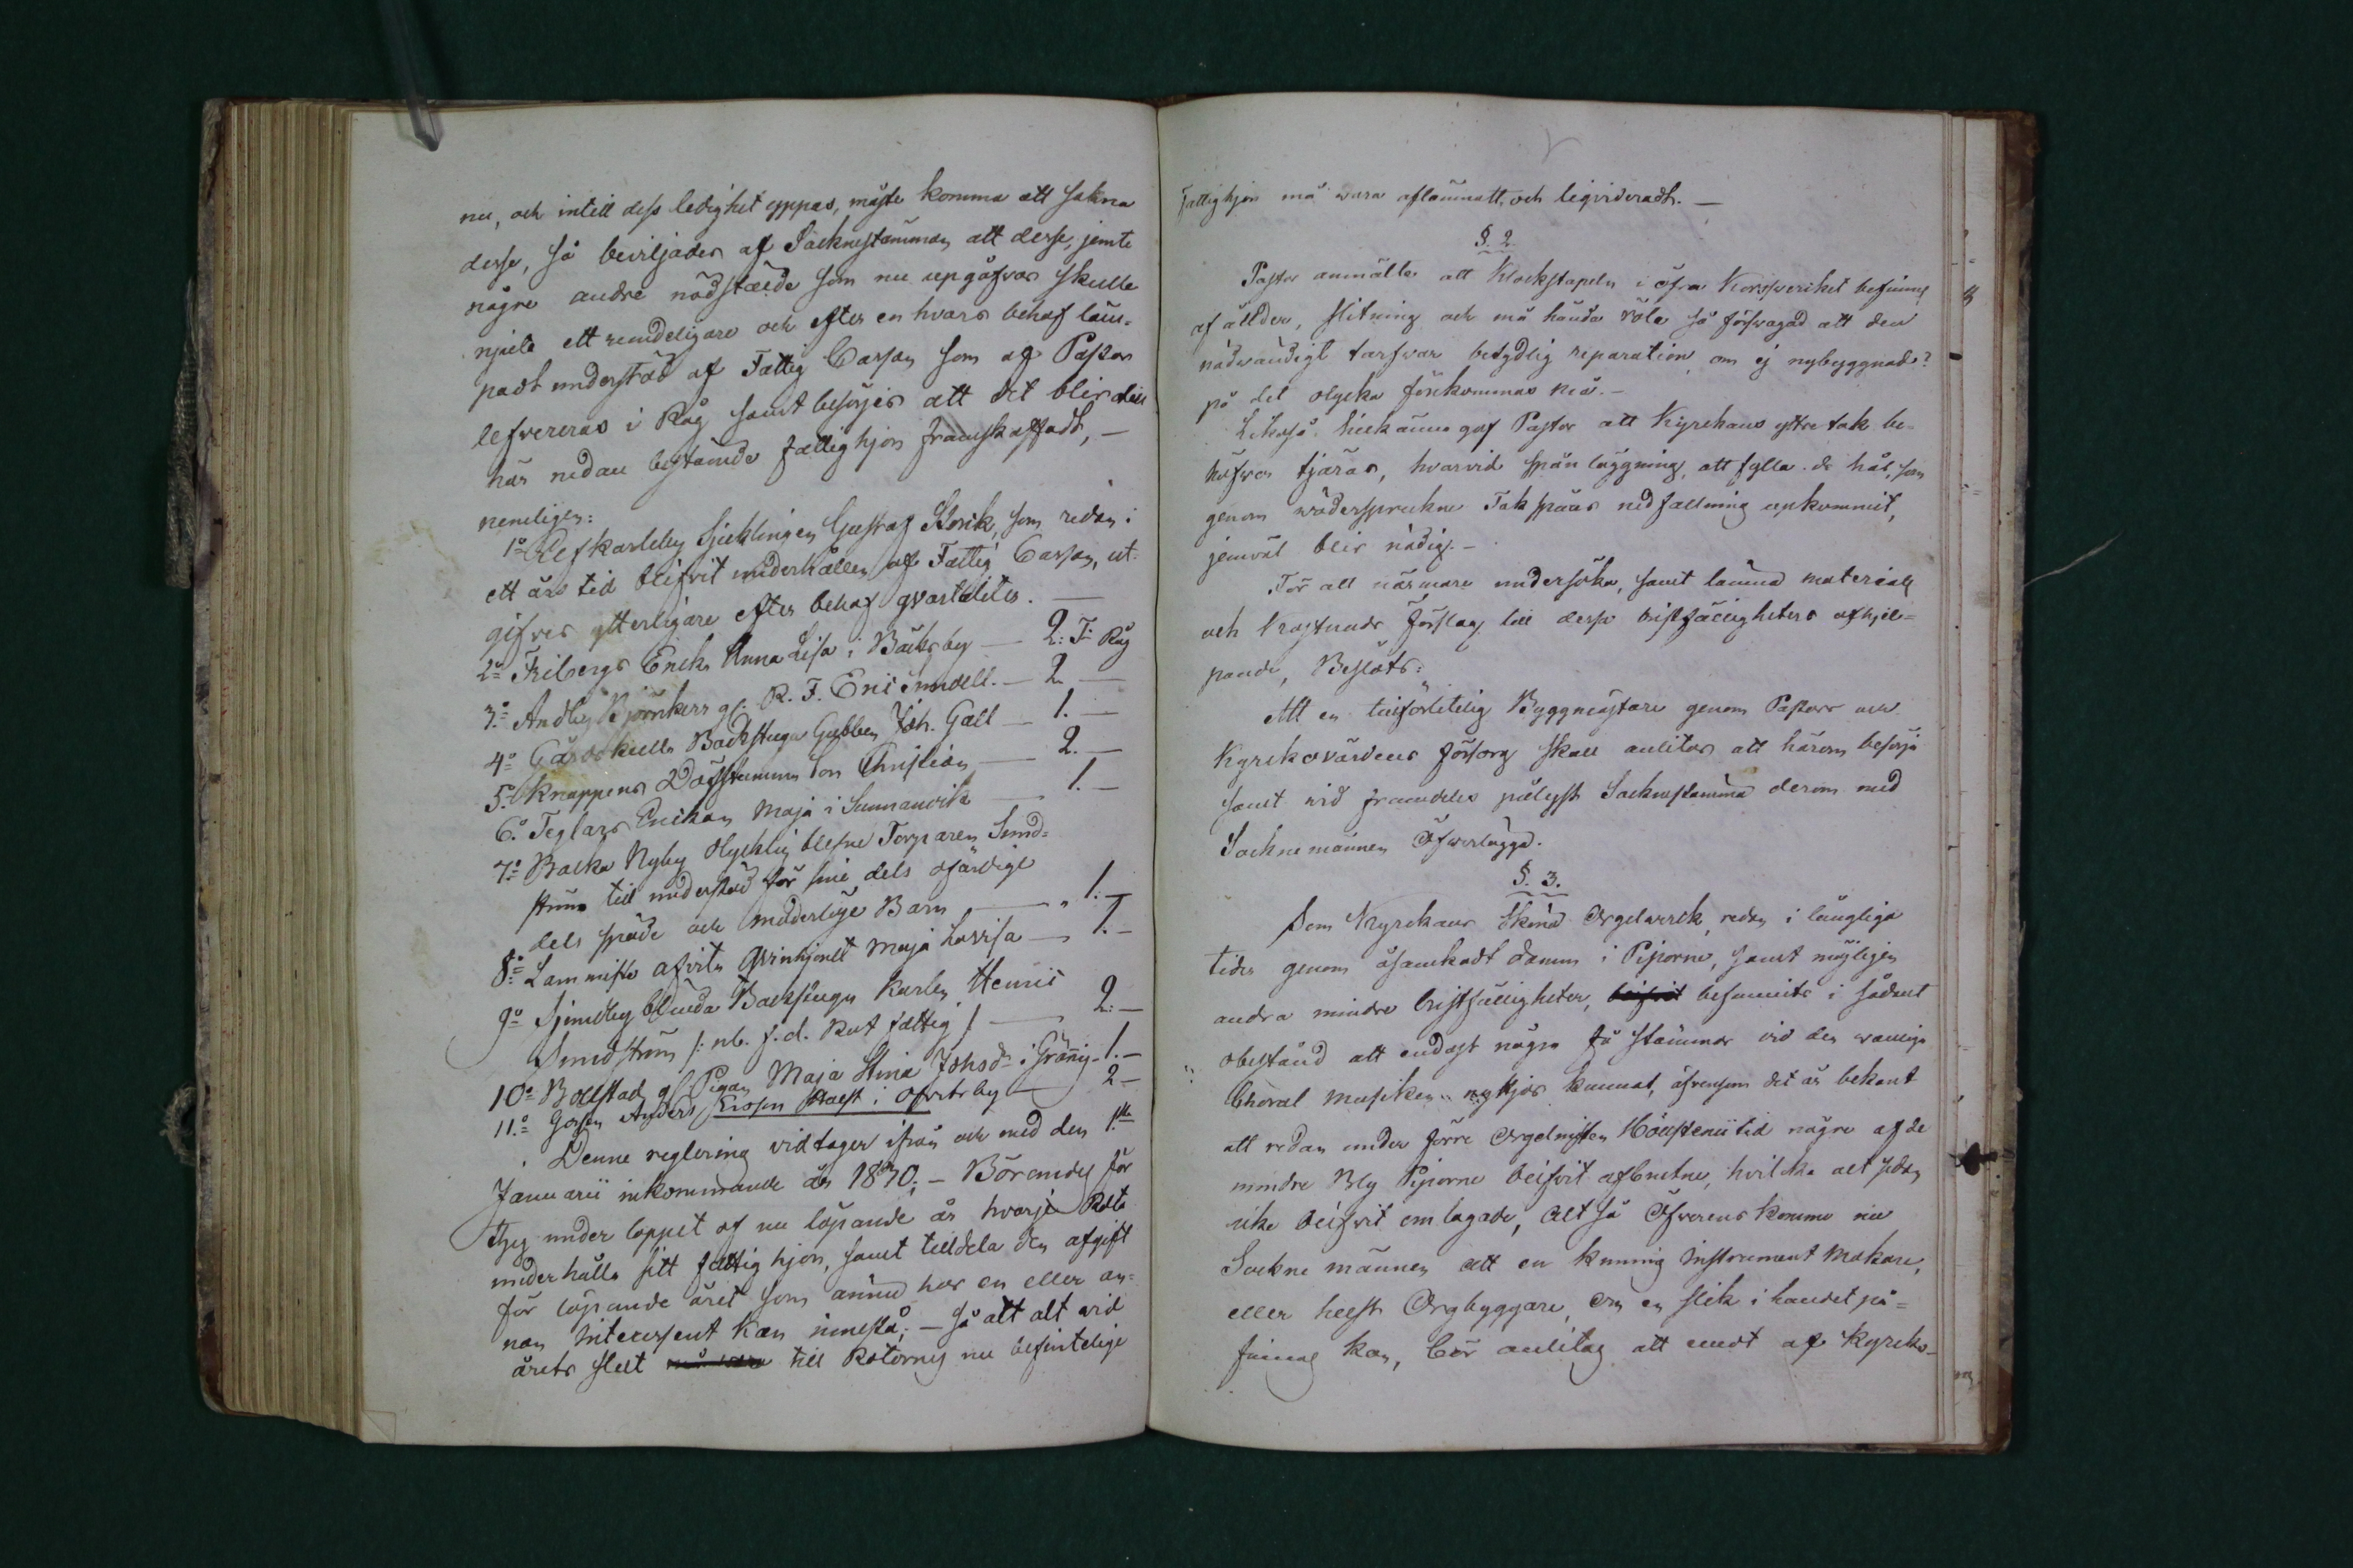 nu, och intill dess ledighet yppas, måste komma att sakna
desse, så beviljades af Socknestämman att desse, jemte
någre andre nödstälde som nu upgåfvos skulle
njuta ett rundeligare och efter en hvars behof läm-
padt understöd af Fattig Cassan som af Pastor
lefvereras i Råg samt besörjes att det blir dem
här nedan bestämde fattighjon framskaffadt, —
nemligen:
1:o Elefkarleby Sjuklingen Gustaf Storik, som redan i
ett års tid blifvit underhållen af Fattig Cassan, ut-
gifves ytterligare efter behof qvartaliter. —
2:o Fribergs Enka Anna Lisa i Bäcksby — 2: T: Råg
3:o Andby Björnkers gl. R. F. Eric Sundell. — 2 —
4:o Gårdskulla Backstugu Gubben Joh. Gall — 1. —
5:o Knappens Döfstumma Son Christian — 2. —
6:o Teglars Enkan Maja i Sunnanvik — 1. —
7:o Backa Nyby Olycklig blefne Torparen Sund-
ström till understöd för sine dels ofärdige
dels späde och moderlöse Barn — 1. —
8:o Lammiste afvita Qvinhjonet Maja Lovisa — 1. —
9:o Sjundby blinda Backstugu Karlen Henric
Sundström /: nb. f. d. Rot fattig / — 2. —
10:o Bollstad gl. Pigan Maja Stina Johsdr i Gräng — 1. —
11:o Gossen Anders Ersson Stolt i Ofvitsby — 2 —
Denne reglering vidtager ifrån och med den 1:sta
Januarii inkommande år 1840; — Börandes för
Thy under loppet af nu löpande år hvarje Rote
underhålla sitt fattig hjon, samt tilldela den afgift
för löpande året som ännu hos en eller an-
nan Interessent kan innestå; — så att alt vid
årets slut till Rotornes nu befintelige
fattighjon må vara aflämnatt, och liqvideradt. —
§. 2.
Pastor anmälte att Klockstapeln i öfra Korssverket befinnes
af ållder, slitning och må hända röta så försvagad att den
nödvändigt tarfvar betydlig reparation, om ej nybyggnad?
på det olycka förekommas må. —
Likaså tillkänna gaf Pastor att Kyrckans yttre tak be-
höfver tjäras, hvarvid spån läggning, att fylla de hål, som
genom vädersprukne Tak spåns nedfallning upkommit,
jemväl blir nödig. —
För att närmare undersöka, samt lämna materials
och kostnads förslag till desse bristfälligheters afhjel-
pande, Beslöts:
Att en tillförlitelig Byggmästare genom Pastors och
Kyrckovärdens försorg skall anlitas att härom besörja
samt vid framdeles pålyst Socknestämma derom med
Sockne männen Öfverlägga.
§. 3.
Som Kyrckans Skönå Orgelverck, redan i längliga
tider genom åsamkadt damm i Piporne, samt möjligen
andra mindre bristfälligheter, befunnits i sådant
obestånd att endast några få stämmor vid den vanliga
Choral musiken nyttjas kunnat, äfvensom det är bekant
att redan under förre Orgelnisten Höckstenii tid någre af de
mindre Bly Piporne blifvit afbrutne, hvilka alt sedan
icke blifvit omlagade, Alt så Öfverens kommo nu
Sockne männen att en kunnig Instrument Makare,
eller helst Orgbyggare, om en slik i landet på-
finnas kan, bör anlitas att emot af Kyrcko-